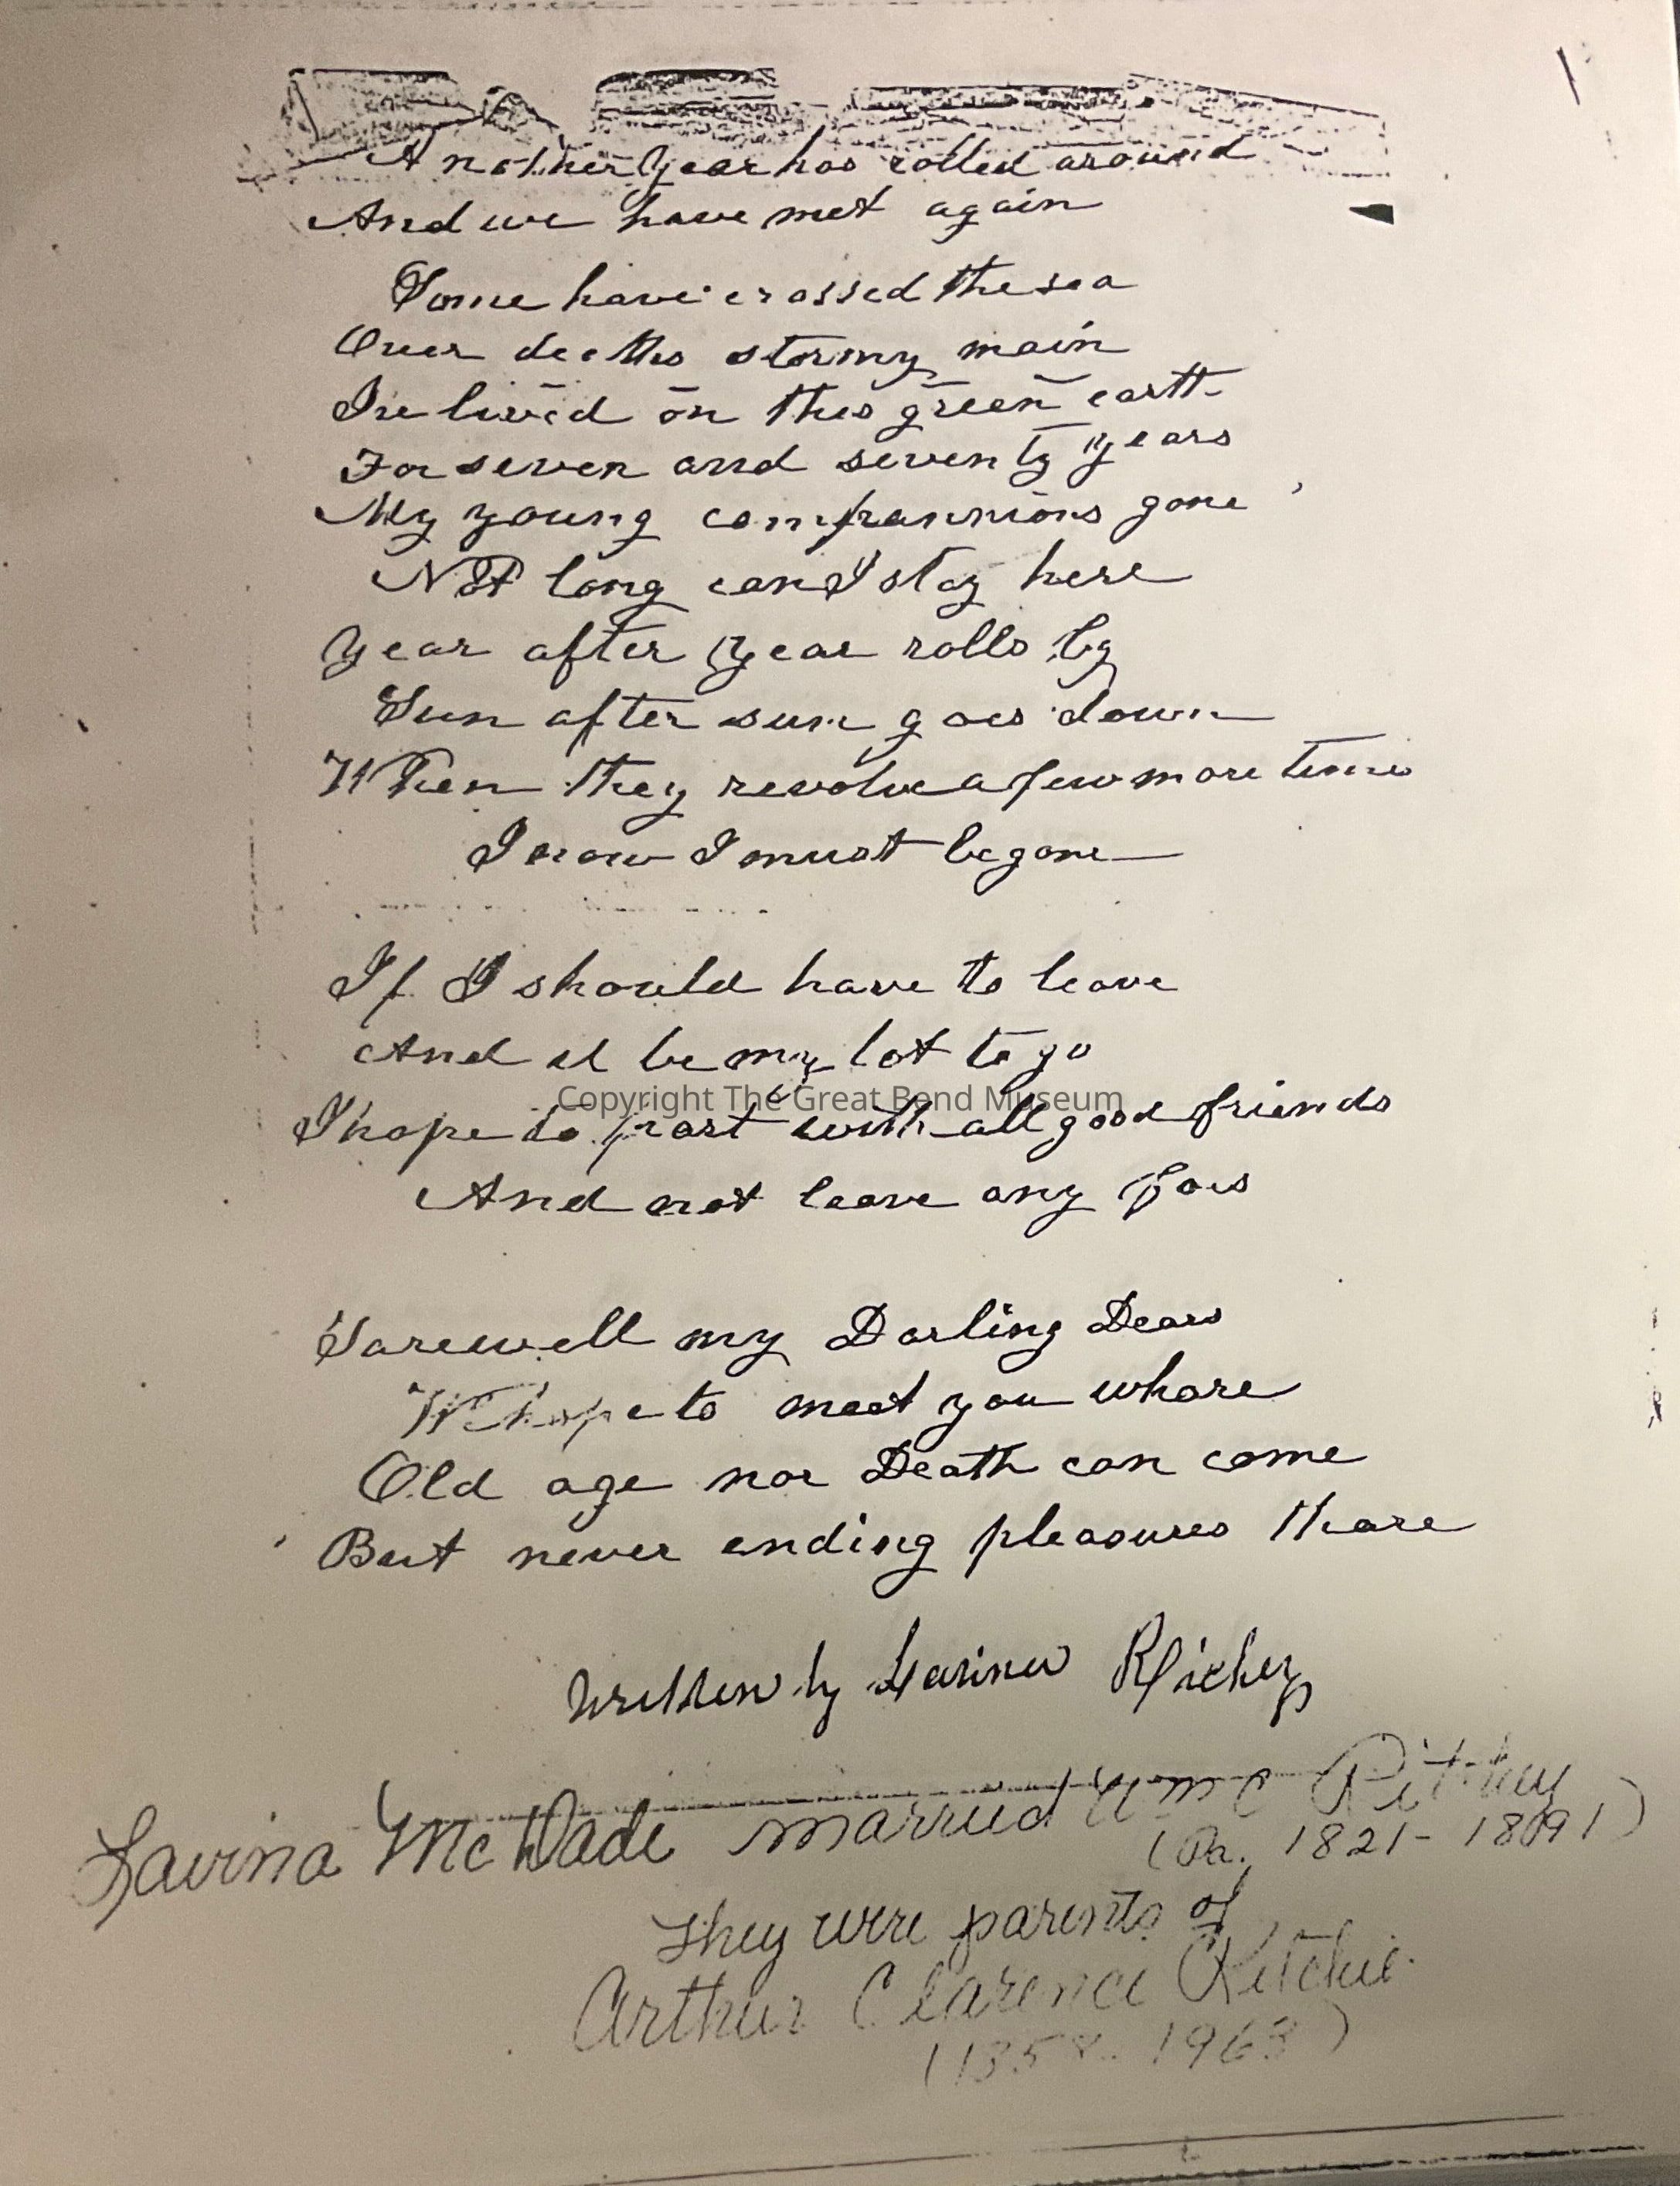 Another Year has rolled around
And we have met again
Some have crossed the sea
Over deeths stormy main
Ive lived on this green earth
For seven and seventy years
My young compannions gone
Not long can I stay here
Year after year rolls by
Sun after sun goes down
When they revolve a few more times
I now I must be gone
If I should have to leave
And it be my lot to go
Copyright The Great Bend Museum
I hope to part with all good friends
And not leave any foes
Farewell my Darling Dears
We hope to meet you whare
Old age nor Death can come
But never ending pleasures thare
Written by Lavina Richey
Lavina McDade married Wm C Ritchey
(Pa. 1821-1891)
They were parents of
Arthur Clarence Ritchie
(1858-1963)